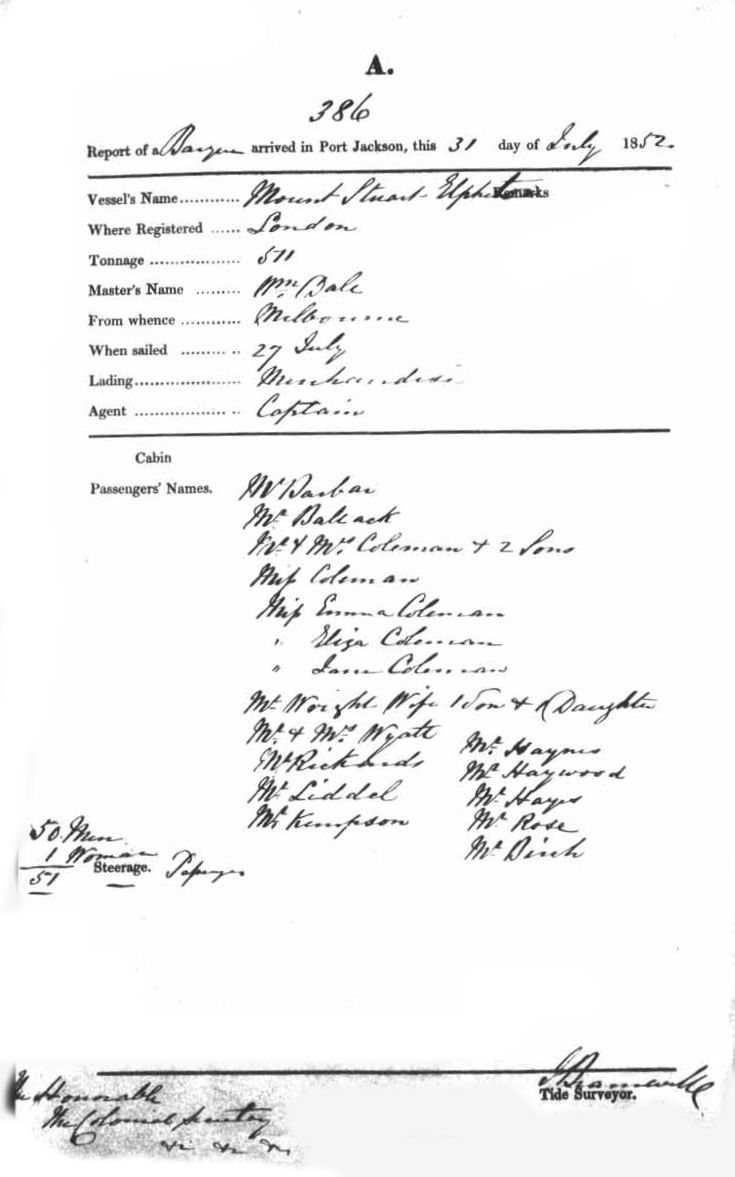 A.
386
Report of a Barque arrived in Port Jackson, this 31 day of July 1852.
Vessel's Name............ Mount Stuart Elphinstone Remarks
Where Registered ...... London
Tonnage .................. 511
Master's Name ......... Wm
From whence ............ Melbourne
When sailed ........... .. 27 July
Lading..................... Merchandise
Agent .................. .. Captain
Cabin
Passengers' Names. Mr Barbar
Mr
Mr & Mrs Coleman & 2 Sons
Miss Coleman
Miss Emma Coleman
" Eliza Coleman
" Jane Coleman
Mr Wright Wife 1 Son & Daughter
Mr & Mrs Wyatt
Mr Rickards
Mr Liddel
Mr Kempson
Mr Haynes
Mr Haywood
Mr Hayes
Mr Rose
Mr Birch
50 Men
1 Woman
51 Steerage.
Tide Surveyor.
The Honorable
The Colonial Secretary
&c &c &c